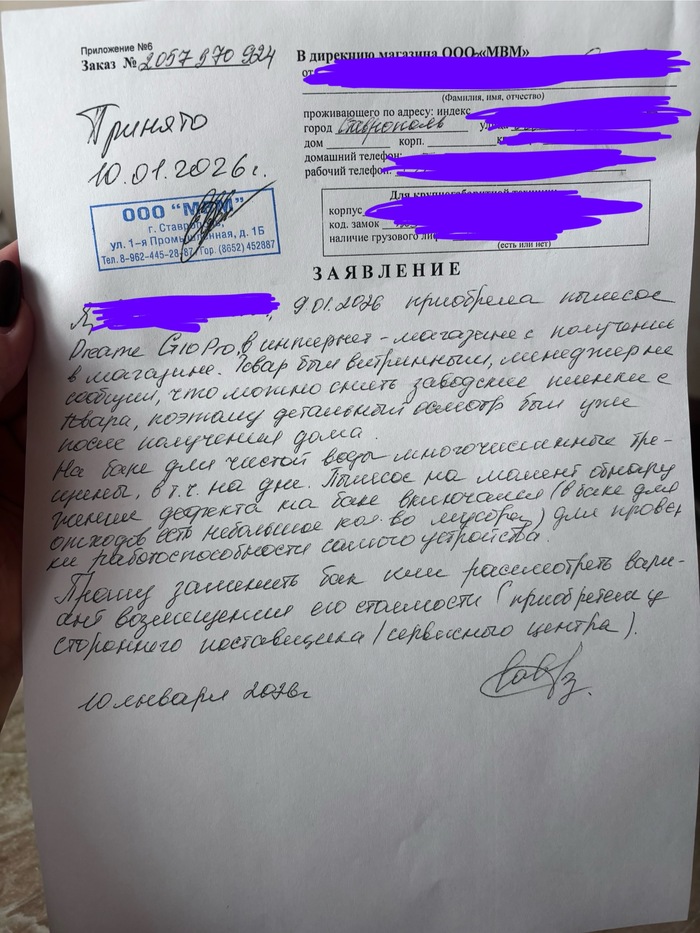 Приложение №6
Заказ № 2057 970 924
В дирекцию магазина ООО «МВМ»
от
(Фамилия, имя, отчество)
проживающего по адресу: индекс
город Ставрополь
дом корп.
домашний телефон:
рабочий телефон:
Принято
10.01.2026г.
ООО "МВМ"
г. Ставрополь,
ул. 1-я Промышленная, д. 1Б
Тел. 8-962-445-28-87 Гор. (8652) 452887
Для крупногабаритной техники
корпус
код. замок
наличие грузового
(есть или нет)
ЗАЯВЛЕНИЕ
Я, 9.01.2026 приобрела пылесос
Dreame G10 Pro, в интернет-магазине с получением
в магазине. Товар был витринный, менеджер не
сообщил, что можно снять заводские пленки с
товара, поэтому детальный осмотр был уже
после получения дома.
На баке для чистой воды многочисленные тре-
щины, в т.ч. на дне. Пылесос на момент обнару
жения дефекта на бак включался (в баке для
отходов есть небольшое кол-во мусора) для провер
ки работоспособности самого устройства.
Прошу заменить бак или рассмотреть вари-
ант возмещения его стоимости (приобретен у
стороннего поставщика/сервисного центра).
10 января 2026г